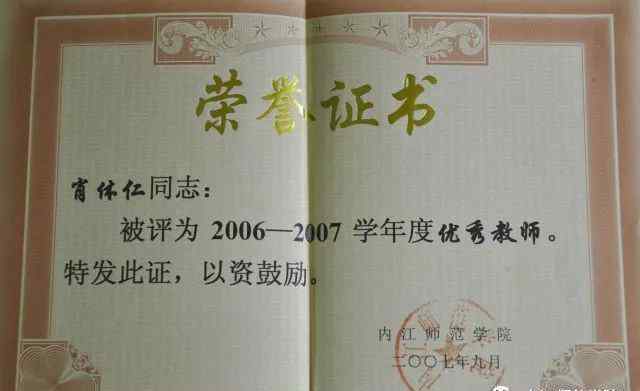 荣誉证书
肖体仁同志：
被评为 2006—2007 学年度优秀教师。
特发此证，以资鼓励。
内江师范学院
二〇〇七年九月